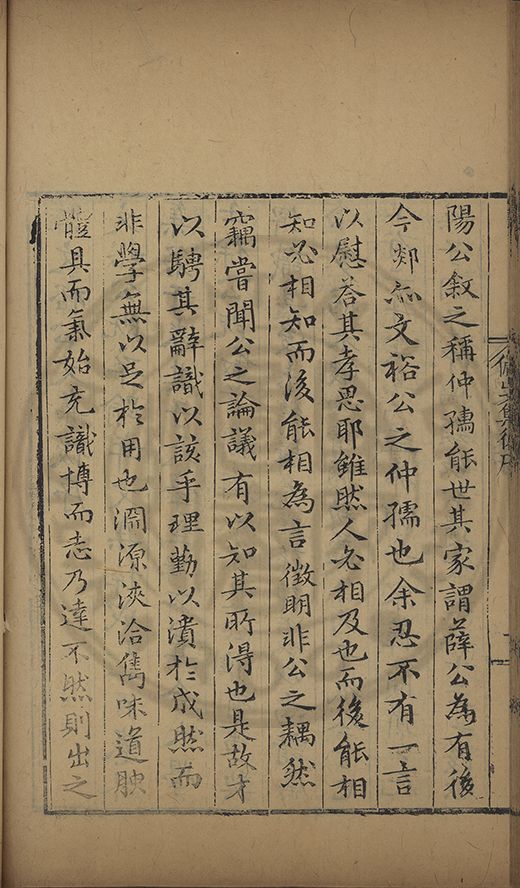 陽公敘之稱仲孺能世其家謂薛公為有後
今郯亦文裕公之仲孺也余忍不有一言
以慰荅其孝思耶雖然人必相及也而後能相
知必相知而後能相為言徵明非公之耦然
竊嘗聞公之論議有以知其所得也是故才
以騁其辭識以該乎理勤以潰於成然而
非學無以足於用也淵源浹洽雋味道腴
體具而氣始充識博而志乃達不然則出之